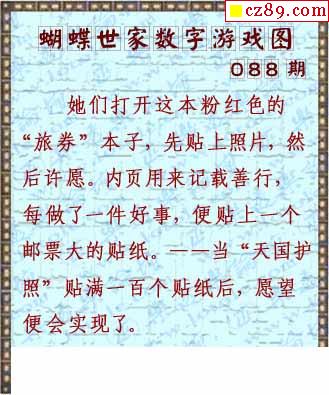 cz89.com
蝴蝶世家数字游戏图
088期
她们打开这本粉红色的
“旅券”本子，先贴上照片，然
后许愿。内页用来记载善行，
每做了一件好事，便贴上一个
邮票大的贴纸。——当“天国护
照”贴满一百个贴纸后，愿望
便会实现了。